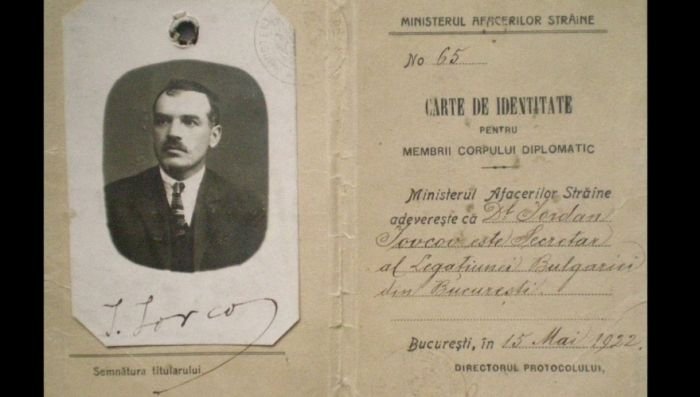 I. Iovco
Semnătura titularului
MINISTERUL AFACERILOR STRĂINE
No 65
CARTE DE IDENTITATE
PENTRU
MEMBRII CORPULUI DIPLOMATIC
Ministerul Afacerilor Străine
adeverește că Dl Iordan
Iovcov este Secretar
al Legațiunei Bulgariei
din București.
București, în 15 Mai 1922
DIRECTORUL PROTOCOLULUI,